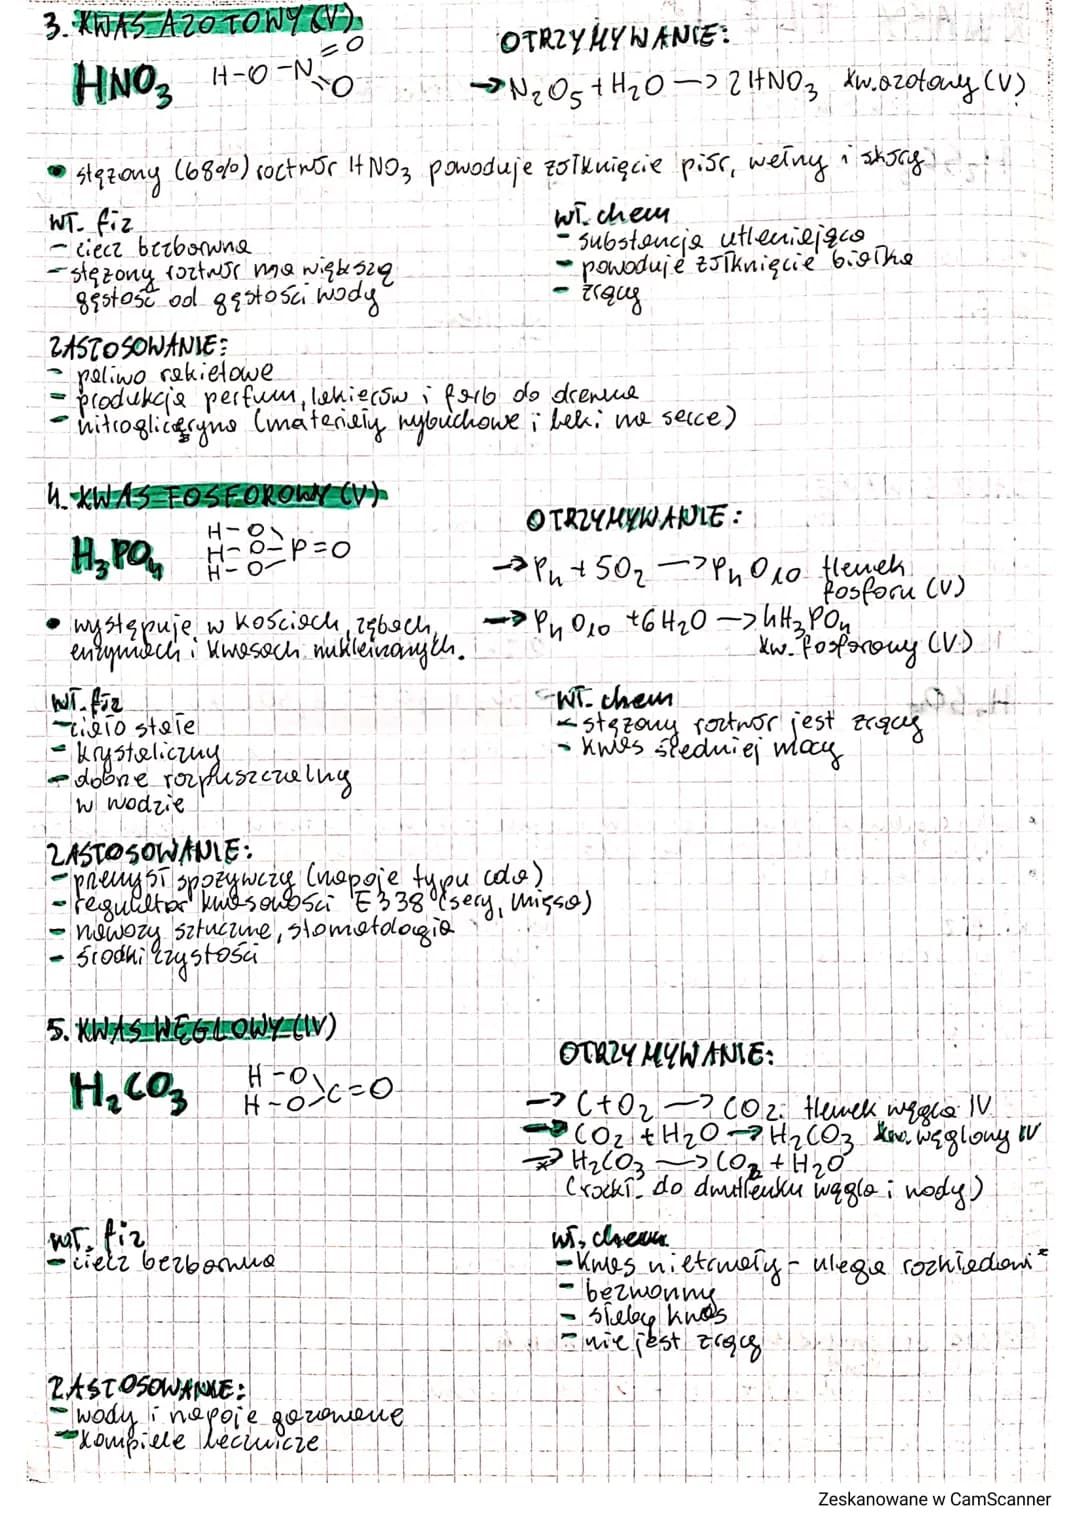 3. KWAS AZOTOWY (V)
HNO3 H-O-N=O
O
OTRZYMYWANIE:
→ N2O5 + H2O → 2HNO3 kw. azotowy (V)
• stężony (68%) roztwór HNO3 powoduje żółknięcie piór, wełny i skóry
wł. fiz
- ciecz bezbarwna
- stężony roztwór ma większą
gęstość od gęstości wody
wł. chem
- substancja utleniająca
- powoduje żółknięcie białka
- żrący
ZASTOSOWANIE:
- paliwo rakietowe
- produkcja perfum, lakierów i farb do drewna
- nitrogliceryna (materiały wybuchowe i leki na serce)
4. KWAS FOSFOROWY (V)
H3PO4
H-O
H-O-P=O
H-O
OTRZYMYWANIE:
→ P4 + 5O2 → P4O10 tlenek
fosforu (V)
→ P4O10 + 6H2O → 4H3PO4
kw. fosforowy (V)
• występuje w kościach, zębach,
enzymach i kwasach nukleinowych.
wł. fiz
- ciało stałe
- krystaliczny
- dobrze rozpuszczalny
w wodzie
wł. chem
- stężony roztwór jest żrący
- kwas średniej mocy
ZASTOSOWANIE:
- przemysł spożywczy (napoje typu cola)
- regulator kwasowości E338 (sery, mięsa)
- nawozy sztuczne, stomatologia
- środki czystości
5. KWAS WĘGLOWY (IV)
H2CO3
H-O
H-O C=O
OTRZYMYWANIE:
→ C + O2 → CO2 tlenek węgla IV
→ CO2 + H2O → H2CO3 kw. węglowy IV
→ H2CO3 → CO2 + H2O
(rozkł. do dwutlenku węgla i wody)
wł. fiz
- ciecz bezbarwna
wł. chem
- kwas nietrwały - ulega rozkładowi
- bezwonny
- słaby kwas
- nie jest żrący
ZASTOSOWANIE:
- wody i napoje gazowane
- kąpiele lecznicze
Zeskanowane w CamScanner